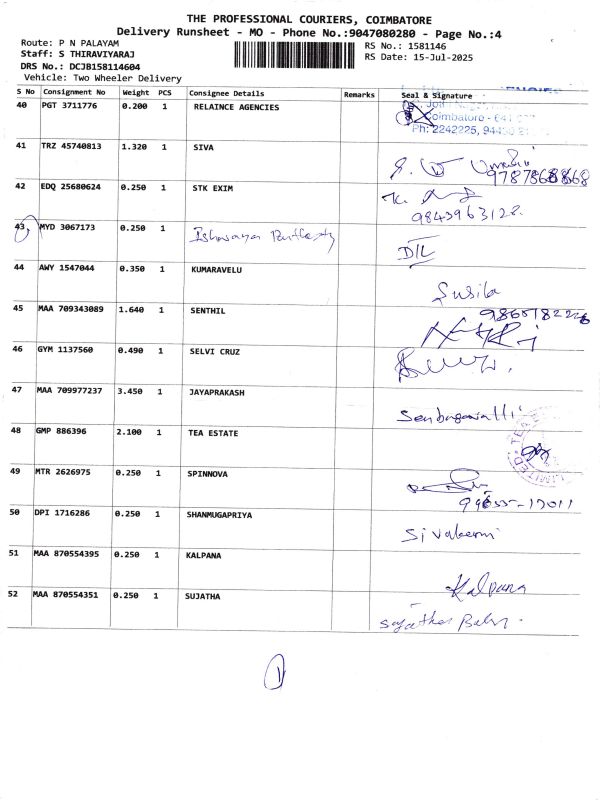 THE PROFESSIONAL COURIERS, COIMBATORE
Delivery Runsheet - MO - Phone No.:9047080280 - Page No.:4
Route: P N PALAYAM
RS No.: 1581146
Staff: S THIRAVIYARAJ
RS Date: 15-Jul-2025
DRS No.: DCJB158114604
Vehicle: Two Wheeler Delivery
S No Consignment No Weight PCS Consignee Details Remarks Seal & Signature
40 PGT 3711776 0.200 1 RELAINCE AGENCIES
Coimbatore - 641
Ph: 2242225,
41 TRZ 45740813 1.320 1 SIVA
42 EDQ 25680624 0.250 1 STK EXIM
9843963128.
43, MYD 3067173 0.250 1
44 AWY 1547044 0.350 1 KUMARAVELU
Susila
45 MAA 709343089 1.640 1 SENTHIL
46 GYM 1137560 0.490 1 SELVI CRUZ
47 MAA 709977237 3.450 1 JAYAPRAKASH
Senbagavalli
48 GMP 886396 2.100 1 TEA ESTATE
49 MTR 2626975 0.250 1 SPINNOVA
50 DPI 1716286 0.250 1 SHANMUGAPRIYA
51 MAA 870554395 0.250 1 KALPANA
Kalpana
52 MAA 870554351 0.250 1 SUJATHA
1